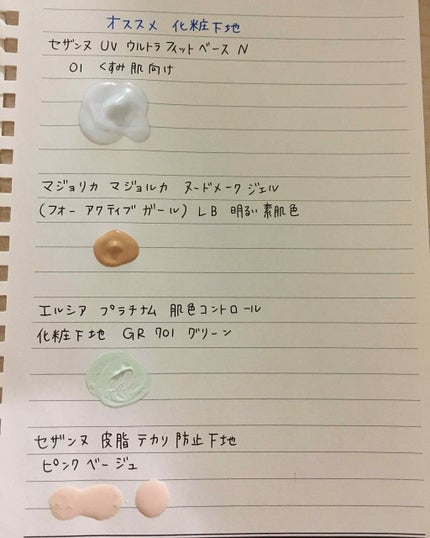 オススメ 化粧下地
セザンヌ UV ウルトラフィットベース N
01 くすみ肌向け
マジョリカ マジョルカ ヌードメークジェル
(フォー アクティブガール) LB 明るい素肌色
エルシア プラチナム 肌色コントロール
化粧下地 GR 701 グリーン
セザンヌ 皮脂テカリ防止下地
ピンクベージュ